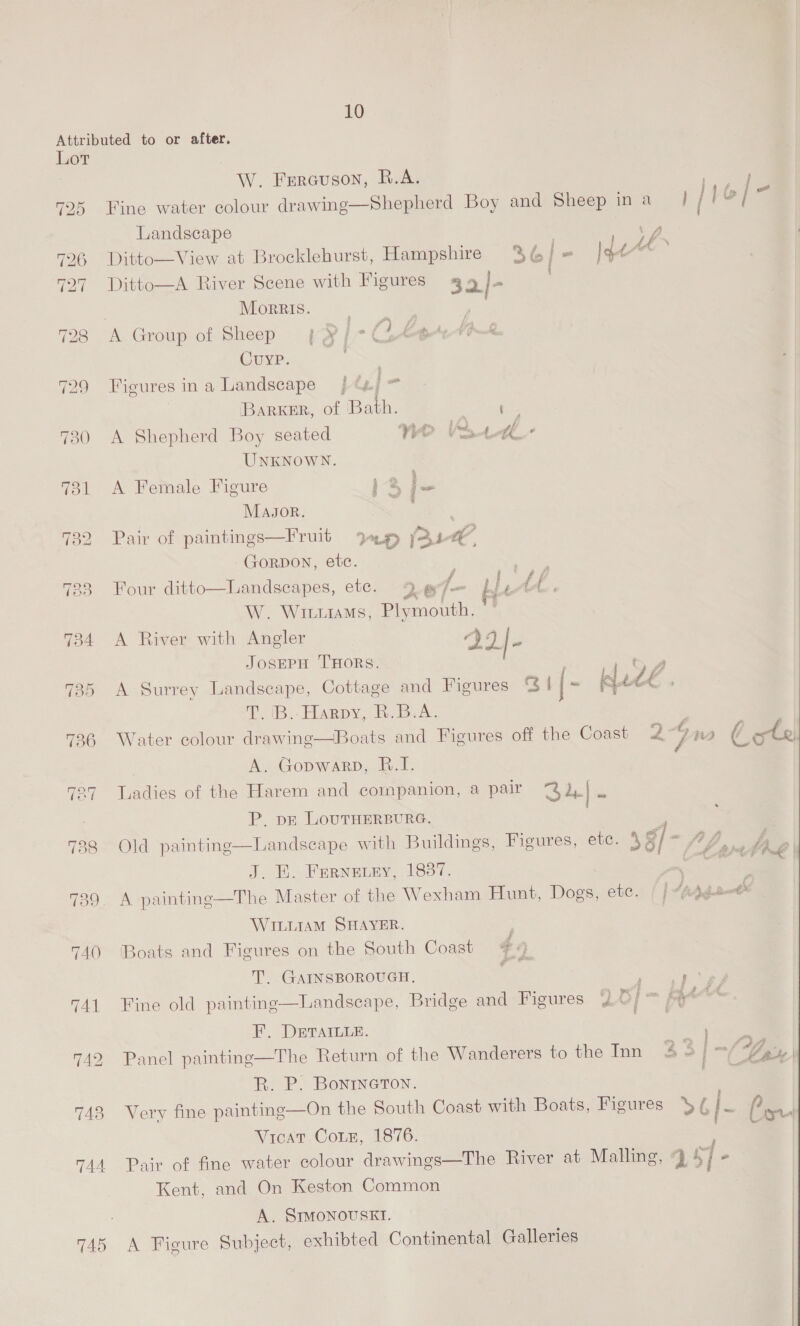 10
Attributed to or after.
Lot
W. Ferguson, R.A.
725 Fine water colour drawing—Shepherd Boy and Sheep in a 1/16/-
Landscape
726 Ditto—View at Brocklehurst, Hampshire 36/-
727 Ditto—A River Scene with Figures 32/-
Morris.
728 A Group of Sheep
Cuyp.
729 Figures in a Landscape
Barker, of Bath.
730 A Shepherd Boy seated
Unknown.
731 A Female Figure 13/-
Major.
732 Pair of paintings—Fruit
Gordon, etc.
733 Four ditto—Landscapes, etc.
W. Williams, Plymouth.
734 A River with Angler 22/-
Joseph Thors.
735 A Surrey Landscape, Cottage and Figures 31/-
T. B. Hardy, R.B.A.
736 Water colour drawing—Boats and Figures off the Coast
A. Godward, R.I.
737 Ladies of the Harem and companion, a pair 34/-
P. de Loutherburg.
738 Old painting—Landscape with Buildings, Figures, etc. 38/-
J. E. Ferneley, 1837.
739 A painting—The Master of the Wexham Hunt, Dogs, etc.
William Shayer.
740 Boats and Figures on the South Coast
T. Gainsborough.
741 Fine old painting—Landscape, Bridge and Figures
F. Detaille.
742 Panel painting—The Return of the Wanderers to the Inn 33/-
R. P. Bonington.
743 Very fine painting—On the South Coast with Boats, Figures 36/-
Vicat Cole, 1876.
744 Pair of fine water colour drawings—The River at Malling,
Kent, and On Keston Common
A. Simonouski.
745 A Figure Subject, exhibted Continental Galleries